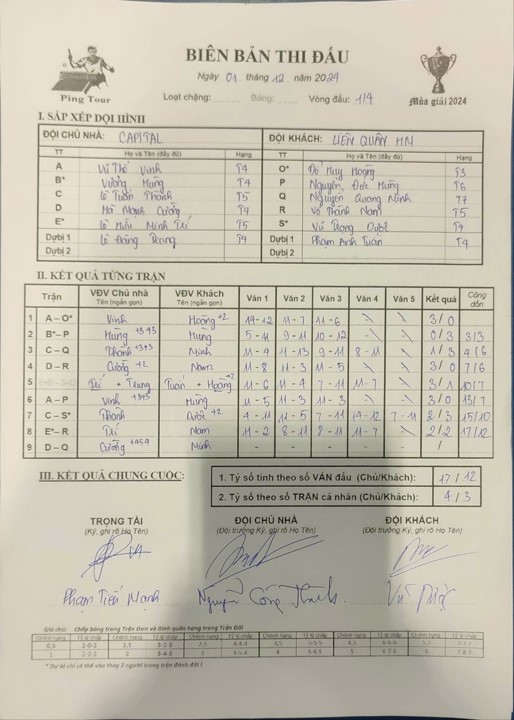 BIÊN BẢN THI ĐẤU
Ngày 01 tháng 12 năm 2024
Ping Tour
Loạt chặng: Bảng: Vòng đấu: 1/4
Mùa giải 2024
I. SẮP XẾP ĐỘI HÌNH
ĐỘI CHỦ NHÀ: CAPITAL ĐỘI KHÁCH: LIÊN QUÂN HN
TT Họ và Tên (đầy đủ) Hạng TT Họ và Tên (đầy đủ) Hạng
A Vũ Thế Vinh T4 O* Đỗ Huy Hoàng T3
B* Vương Hùng T4 P Nguyễn Đức Hùng T6
C Lê Tuấn Thành T5 Q Nguyễn Quang Minh T7
D Hà Mạnh Cường T4 R Võ Thành Nam T5
E* Lê Hữu Minh Trí T5 S* Vũ Trọng Được T4
Dự bị 1 Lê Đăng Trung T4 Dự bị 1 Phạm Anh Tuấn T4
Dự bị 2 Dự bị 2
II. KẾT QUẢ TỪNG TRẬN
Trận VĐV Chủ nhà VĐV Khách Ván 1 Ván 2 Ván 3 Ván 4 Ván 5 Kết quả Cộng dồn
Tên (ngắn gọn) Tên (ngắn gọn)
1 A – O* Vinh Hoàng +2 14-12 11-7 11-6 \ \ 3/0
2 B* – P Hùng +343 Hùng 5-11 9-11 10-12 \ \ 0/3 3/3
3 C – Q Thành +3+3 Minh 11-4 11-13 9-11 8-11 \ 1/3 4/6
4 D – R Cường +2 Nam 11-8 11-3 11-5 \ \ 3/0 7/6
5 Trí + Trung Tuấn + Hoàng 11-6 11-4 7-11 11-7 \ 3/1 10/7
6 A – P Vinh +343 Hùng 11-5 11-3 11-3 \ 3/0 13/7
7 C – S* Thành Được +2 4-11 11-5 7-11 14-12 7-11 2/3 15/10
8 E* – R Trí Nam 11-2 8-11 8-11 11-7 \ 2/2 17/12
9 D – Q Cường +454 Minh - - - - - /
III. KẾT QUẢ CHUNG CUỘC:
1. Tỷ số tính theo số VÁN đấu (Chủ/Khách): 17 / 12
2. Tỷ số theo số TRẬN cá nhân (Chủ/Khách): 4 / 3
TRỌNG TÀI ĐỘI CHỦ NHÀ ĐỘI KHÁCH
(Ký, ghi rõ Họ Tên) (Đội trưởng Ký, ghi rõ Họ Tên) (Đội trưởng Ký, ghi rõ Họ Tên)
Phạm Tiến Mạnh Nguyễn Công Thành
Ghi chú: Chấp bóng trong Trận Đơn và Bình quân hạng trong Trận Đôi
Chênh hạng Tỷ lệ chấp Chênh hạng Tỷ lệ chấp Chênh hạng Tỷ lệ chấp Chênh hạng Tỷ lệ chấp Chênh hạng Tỷ lệ chấp Chênh hạng Tỷ lệ chấp
* Dự bị chỉ có thể vào thay 2 người trong trận đánh đôi !